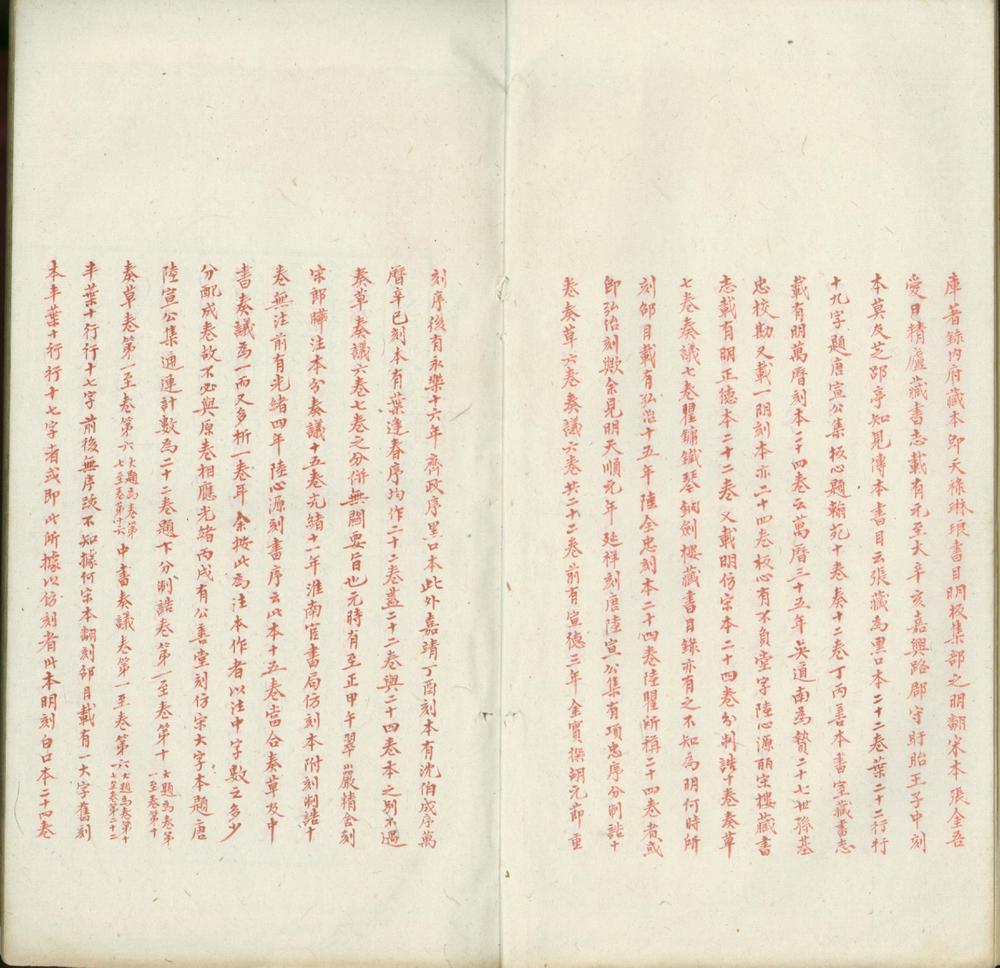 庫著錄內府藏本即天祿琳琅書目明板集部之明翻宋本張金吾
愛日精廬藏書志載有元至大辛亥嘉興路郡守盱眙王子中刻
本莫友芝郘亭知見傳本書目云張藏為黑口本二十二卷葉二十二行行
十九字題唐宣公集板心題翰苑十卷奏十二卷丁丙善本書室藏書志
載有明萬曆刻本二十四卷云萬曆三十五年吳道南為贄二十七世孫基
忠校勘又載一明刻本亦二十四卷板心有不負堂字陸心源皕宋樓藏書
志載有明正德本二十二卷又載明仿宋本二十四卷分制誥十卷奏草
七卷奏議七卷瞿鏞鐵琴銅劍樓藏書目錄亦有之不知為明何時所
刻邵目載有弘治十五年陸全忠刻本二十四卷陸瞿所稱二十四卷者或
即弘治刻歟余見明天順元年延祥刻唐陸宣公集有項忠序分制誥十
卷奏草六卷奏議六卷共二十二卷前有宣德三年金寶撰胡元節重
刻序後有永樂十六年齊政序黑口本此外嘉靖丁酉刻本有沈伯咸序萬
曆辛巳刻本有葉逢春序均作二十二卷蓋二十二卷與二十四卷本之別不過
奏草奏議六卷七卷之分併無關要旨也元時有至正甲午翠巖精舍刻
宋郎曄注本分奏議十五卷光緒十一年淮南官書局仿刻本附刻制誥十
卷無注前有光緒四年陸心源刻書序云此本十五卷當合奏草及中
書奏議為一而又多析一卷耳余按此為注本作者以注中字數之多少
分配成卷故不必與原卷相應光緒丙戌有公善堂刻仿宋大字本題唐
陸宣公集通連計數為二十二卷題下分制誥卷第一至卷第十大題為卷第一至卷第十
奏草卷第一至卷第六大題為卷第十七至卷第十六中書奏議卷第一至卷第六大題為卷第十七至卷第二十二
半葉十行行十七字前後無序跋不知據何宋本翻刻邵目載有一大字舊刻
本半葉十行行十七字者或即此所據以仿刻者此本明刻白口本二十四卷